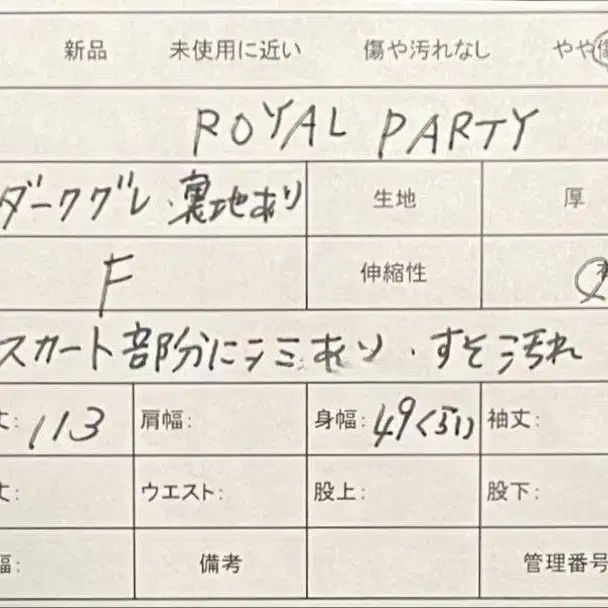 新品 未使用に近い 傷や汚れなし やや傷
ROYAL PARTY
ダークグレ・裏地あり 生地 厚
F 伸縮性
スカート部分にシミあり・すそ汚れ
丈: 113 肩幅: 身幅: 49くらい 袖丈:
丈: ウエスト: 股上: 股下:
幅: 備考 管理番号